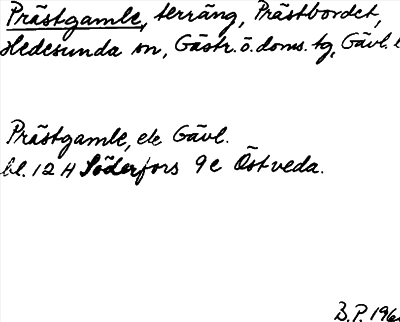 Prästgamle, terräng, Prästbordet,
Hedesunda sn, Gästr. ö. doms. tg, Gävl. l
Prästgamle, ek Gävl.
bl. 12 H Söderfors 9 c Östveda.
B.P. 196